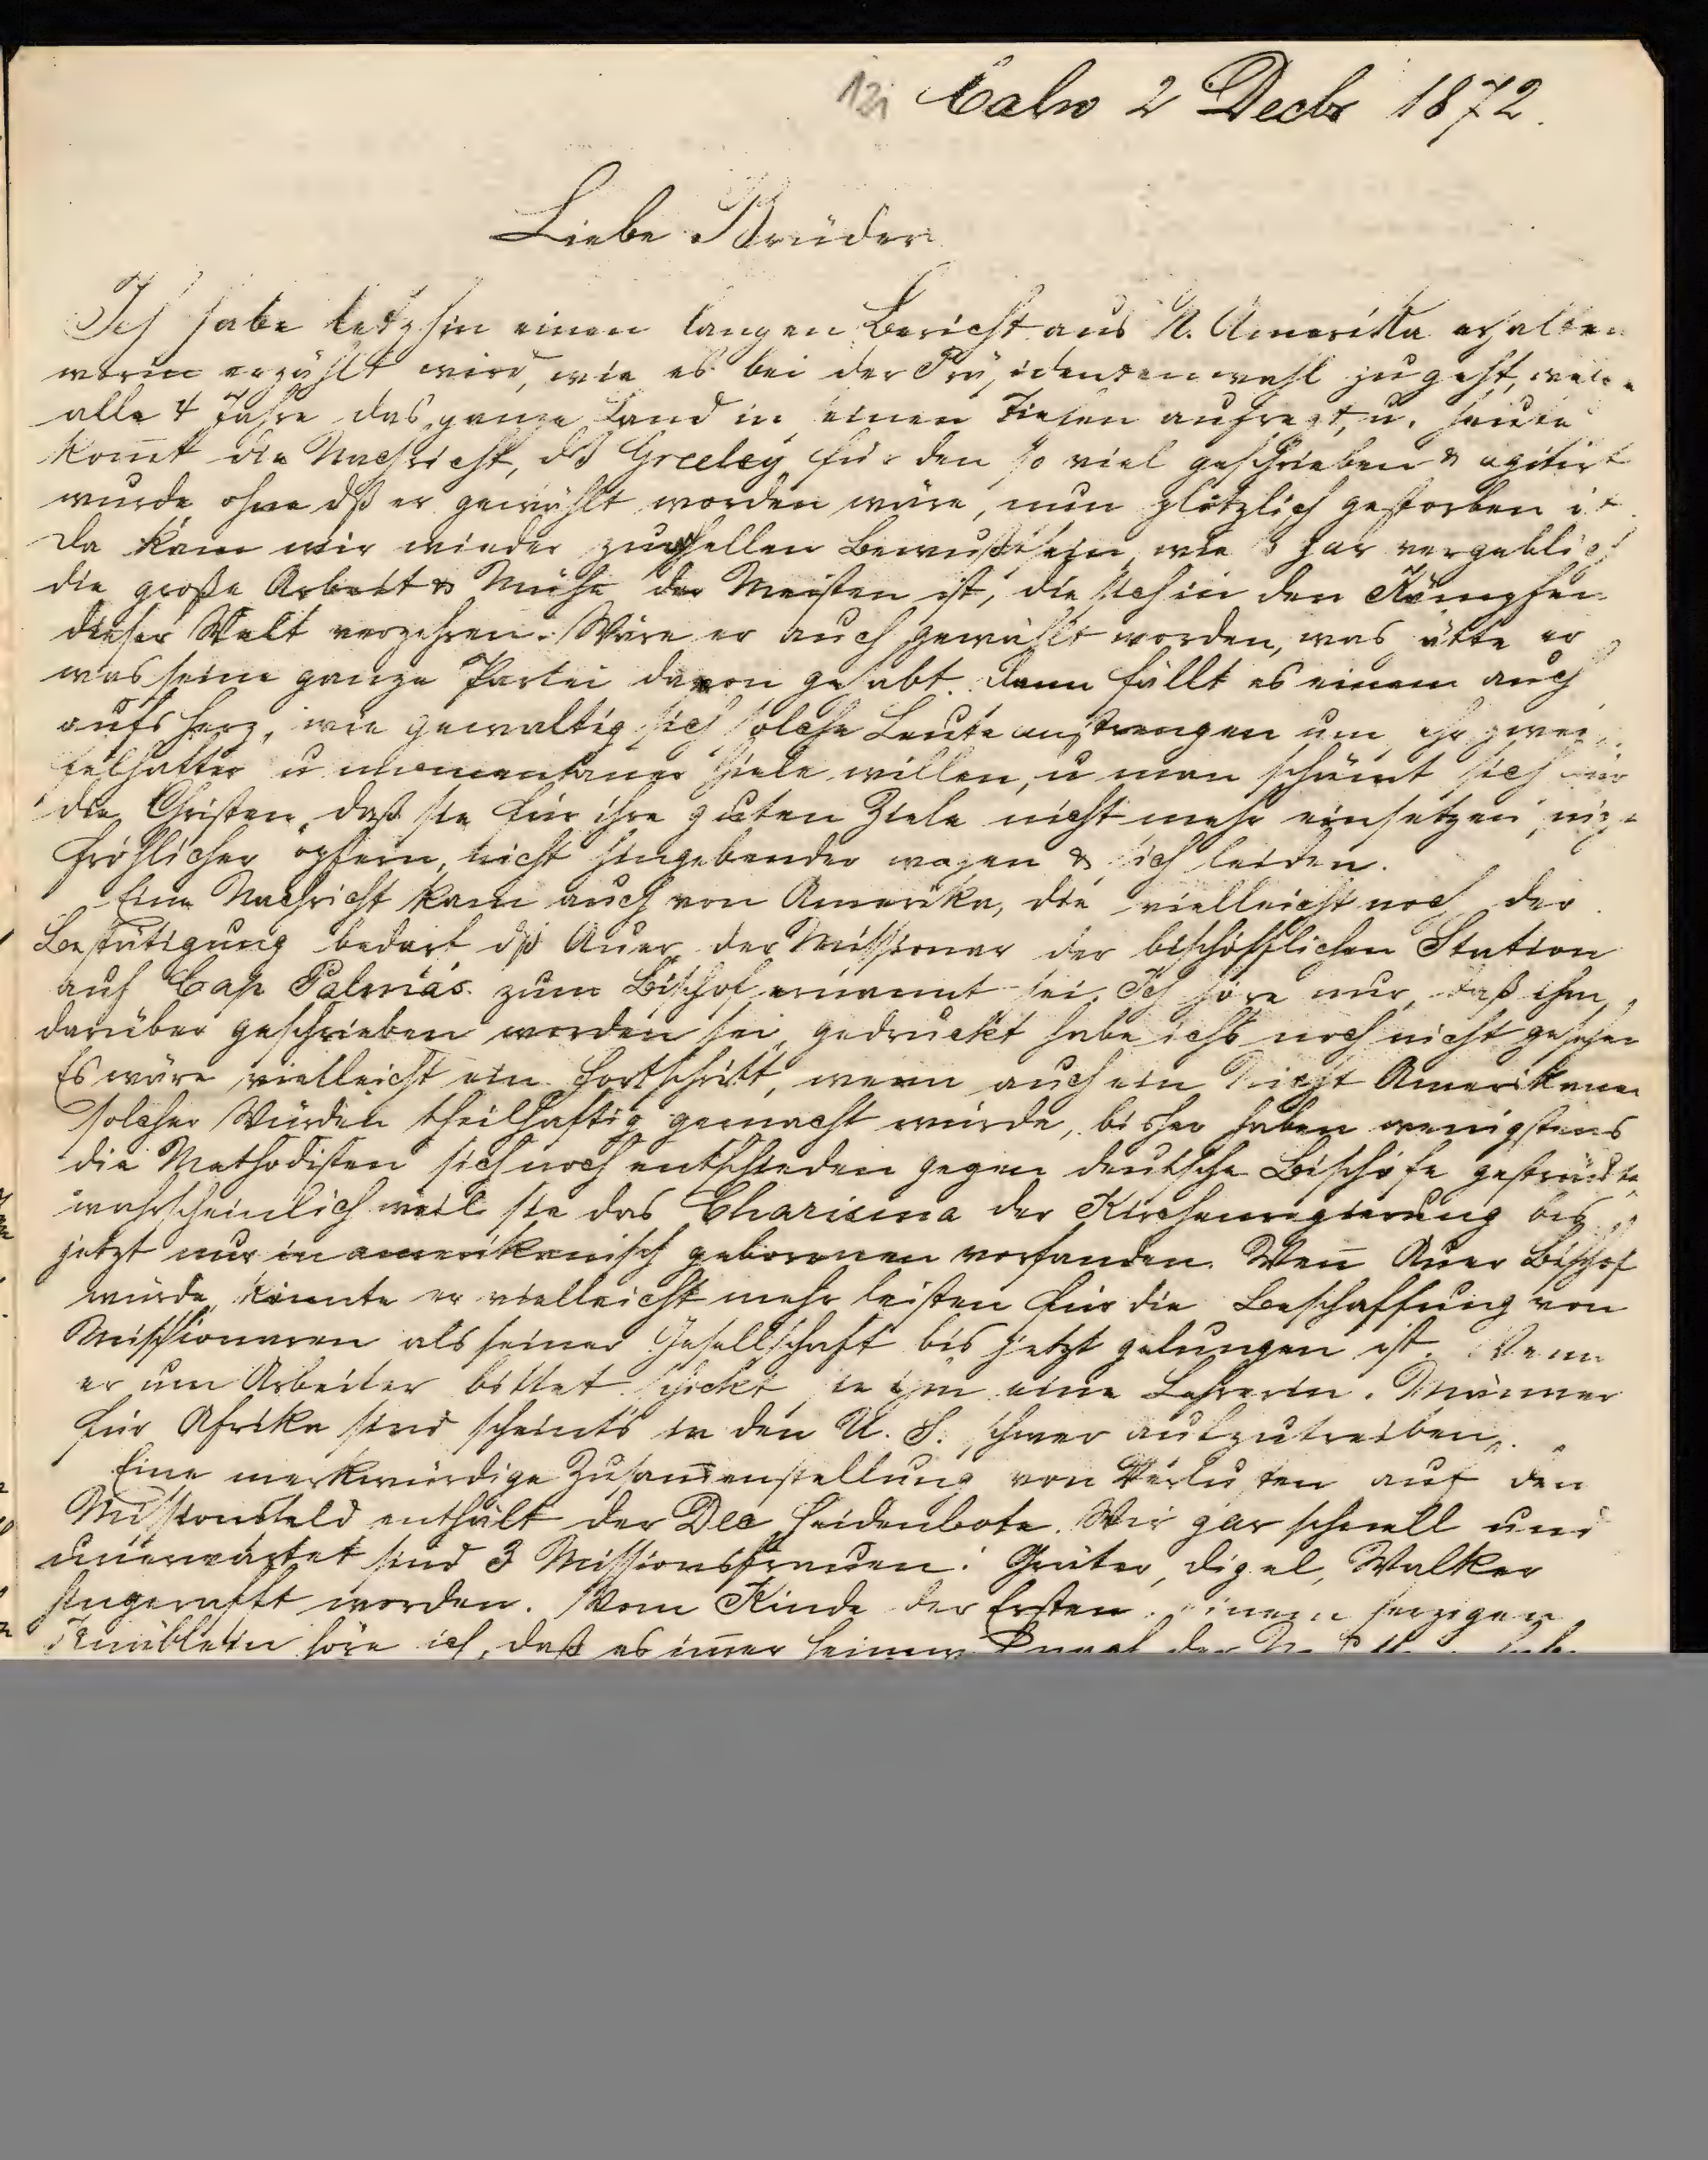 Calw 2 Decbr 1872.
Liebe Brüder
Ich habe letzhin einen langen Bericht aus N. Amerika erhalten
worin erzählt wird, wie es bei der Präsidentenwahl zugeht, welche
alle 4 Jahre das ganze Land in einen aufregt, u. heute
kom̅t die Nachricht, dß Greeley für den so viel geschrieben & agitirt
wurde ohne dß er gewählt worden wäre, nun plötzlich gestorben ist.
Da kam mir wieder zum hellen Bewußtsein, wie so gar vergeblich
die große Arbeit & Mühe der Meisten ist, die sich in den Kämpfen
dieser Welt verzehren. Wäre er auch gewählt worden, was hätte er
was seine ganze Partei davon gehabt. Dann fällt es einem auch
aufs Herz, wie gewaltig sich solche Leute anstrengen um ihr zwei
felhafter u momentaner Ziele willen, u man schämt sich für
die Christen, daß sie für ihre guten Ziele nicht mehr einsetzen, nicht
fröhlicher opfern, nicht hingebender wagen & sich leiden.
Eine Nachricht kam auch von Amerika, die vielleicht noch der
Bestätigung bedarf, dß Auer der Missionar der bischöfflichen Station
auf Cap Palmas zum Bischof ernannt sei. Ich höre nur, daß ihm
darüber geschrieben worden sei, gedruckt habe ichs noch nicht gesehen
Es wäre vielleicht ein Fortschritt, wenn auch ein Nicht Amerikaner
solcher Würden theilhaftig gemacht würde, bisher haben wenigstens
die Methodisten sich noch entschieden gegen deutsche Bischöfe gesträubt,
wahrscheinlich weil sie das Charisma der Kirchenregierung bis
jetzt nur in amerikanisch geborenen vorfanden. Wen̅ Auer Bischof
würde, könnte er vielleicht mehr leisten für die Beschaffung von
Missionaren als seiner Gesellschaft bis jetzt gelungen ist. Wenn
er um Arbeiter bittet schickt sie ihm eine Lehrerin. Männer
für Afrika sind scheints in den U. S. schwer aufzutreiben.
Eine merkwürdige Zusam̅enstellung von Verlusten auf dem
Missionsfeld enthält der Dec Heidenbote. Wie gar schnell und
unerwartet sind 3 Missionsfrauen: Gräter, Digel, Walker
hingerafft worden. Vom Kinde der Ersten, einem herzigen
Knäblein höre ich, daß es im̅er seinem